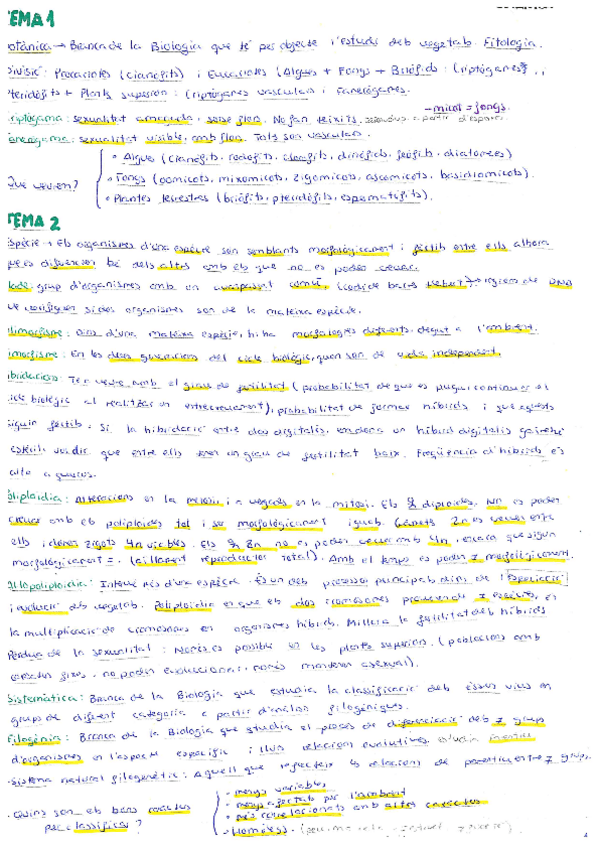 TEMA 1
Botànica → Branca de la Biologia que té per objecte l'estudi dels vegetals. Fitologia.
Divisió: Procariotes (cianòfits) i Eucariotes (Algues + Fongs + Briòfids: (criptògames)
Pteridòfits + Plants superiors: (criptògames vasculars i fanerògames.
- micol = fongs
Criptògama: sexualitat amagada, sense flors. No fan teixits.
Fanerògama: sexualitat visible, amb flors. Tots són vasculars.
• Algues (cianòfits, rodòfits, dinòfids, diatomees)
Que veuen?
• Fongs (oomicots, mixomicots, zigomicots, ascomicots, basidiomicots).
• Plantes terrestres (briòfits, pteridòfits, espermatòfits).
TEMA 2
Espècie → Els organismes d'una espècie són semblants morfològicament i fèrtils entre ells alhora
que es diferencien bé dels altres amb els que no es poden creuar.
Clade: grup d'organismes amb un avantpassat comú. (codi de barres regions de DNA
que si dos organismes són de la mateixa espècie.
Polimorfisme: Dins d'una mateixa espècie, hi ha morfologies diferents, degut a l'ambient.
Dimorfisme: En les dues generacions del cicle biològic, quan són de vida independent.
Hibridació: Té a veure amb el grau de fertilitat (probabilitat de que es pugui continuar el
cicle biològic al realitzar un entrecreuament), probabilitat de formar híbrids i que aquests
siguin fèrtils. Si la hibridació entre dos digitalis, en dona un híbrid digitalis gairebé
estèril, vol dir que entre ells tenen un grau de fertilitat baix. Freqüència d'híbrids és
alta a
Poliploidia: Alteracions en la meiosi i a vegades en la mitosi. Els diploides. No es poden
creuar amb els poliploides tot i ser morfològicament iguals. 2n es creuen entre
ells i donen zigots 4n viables. Els 2n no es poden creuar amb 4n, encara que siguin
morfològicament =. (aïllament reproductor total). Amb el temps es poden ≠ morfològicament.
Al·lopoliploidia: Intervé més d'una espècie. És un dels processos principals dins de l'especiació
i evolució dels vegetals. Poliploidia en que els dos cromosomes provenen de ≠ espècies, en
la multiplicació de cromosomes en organismes híbrids. Millora la fertilitat dels híbrids
Pèrdua de la sexualitat: Només és possible en les plantes superiors. (poblacions amb
caràcters fixos, no poden evolucionar, només manera asexual).
Sistemàtica: Branca de la Biologia que estudia la classificació dels éssers vius en
grups de diferent categoria a partir d'anàlisi filogèniques.
Filogènia: Branca de la Biologia que estudia el procés de diferenciació dels ≠ grups
d'organismes en l'aspecte específic i llurs relacions evolutives.
Sistema natural filogenètic: Aquell que reflecteix les relacions de parentiu entre ≠ grups.
• menys variables
• menys afectats per l'ambient
Quins són els bons caràcters per classificar?
• més correlacionats amb altres caràcters
• Homòlegs.